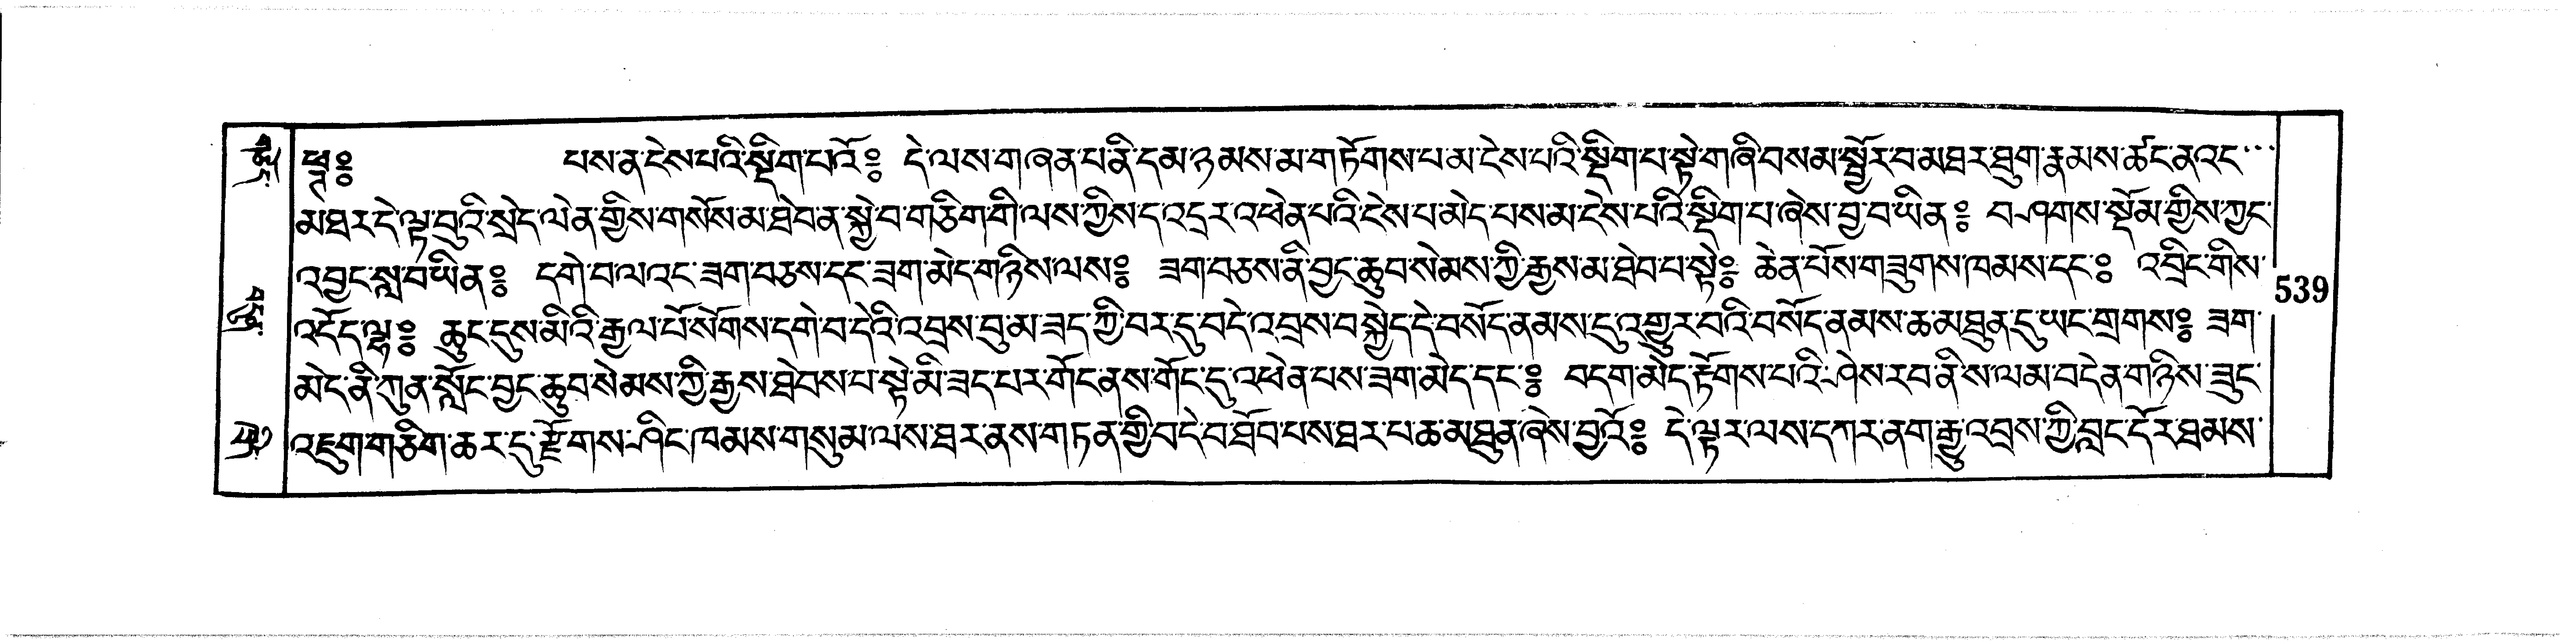 ༄༅༔ པས་ན་ངེས་པའི་སྡིག་པའོ༔ དེ་ལས་གཞན་པ་ནི་དམ་ཉམས་མ་གཏོགས་པ་མ་ངེས་པའི་སྡིག་པ་སྟེ་གཞི་བསམ་སྦྱོར་བ་མཐར་ཐུག་རྣམས་ཚང་ནའང་
མཐར་དེ་ལྟ་བུའི་སྲེད་ལེན་གྱིས་གསོས་མ་ཐེབ་ན་སྐྱེ་བ་གཅིག་གི་ལས་ཀྱིས་ད་འདྲར་འཕེན་པའི་ངེས་པ་མེད་པས་མ་ངེས་པའི་སྡིག་པ་ཞེས་བྱ་བ་ཡིན༔ བཤགས་སྡོམ་གྱིས་ཀྱང་
འབྱང་སླ་བ་ཡིན༔ དགེ་བ་ལའང་ཟག་བཅས་དང་ཟག་མེད་གཉིས་ལས༔ ཟག་བཅས་ནི་བྱང་ཆུབ་སེམས་ཀྱི་རྒྱས་མ་ཐེབ་པ་སྟེ༔ ཆེན་པོས་གཟུགས་ཁམས་དང་༔ འབྲིང་གིས་
འདོད་ལྷ༔ ཆུང་ངུས་མིའི་རྒྱལ་པོ་སོགས་དགེ་བ་དེའི་འབྲས་བུ་མ་ཟད་ཀྱི་བར་དུ་བདེ་འབྲས་བསྐྱེད་དེ་བསོད་ནམས་དུ་འགྱུར་བའི་བསོད་ནམས་ཆ་མཐུན་དུ་ཡང་གྲགས༔ ཟག་
མེད་ནི་ཀུན་སློང་བྱང་ཆུབ་སེམས་ཀྱི་རྒྱས་ཐེབས་པ་སྟེ་མི་ཟད་པར་གོང་ནས་གོང་དུ་འཕེན་པས་ཟག་མེད་དང་༔ བདག་མེད་རྟོགས་པའི་ཤེས་རབ་ནི་ས་ལམ་བདེན་གཉིས་ཟུང་
འཇུག་གཅིག་ཆར་དུ་རྫོགས་ཤིང་ཁམས་གསུམ་ལས་ཐར་ནས་གཏན་གྱི་བདེ་བ་ཐོབ་པས་ཐར་པ་ཆ་མཐུན་ཞེས་བྱའོ༔ དེ་ལྟར་ལས་དཀར་ནག་རྒྱུ་འབྲས་ཀྱི་བླང་དོར་ཐམས་
539